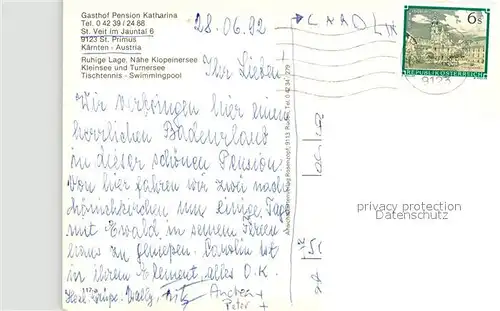 Gasthof Pension Katharina
Tel. 0 42 39 / 24 88
St. Veit im Jauntal 6
9123 St. Primus
Kärnten - Austria
Ruhige Lage, Nähe Klopeinersee
Kleinsee und Turnersee
Tischtennis - Swimmingpool
28.06.92
Ihr Lieben!
Wir verbringen hier einen
herrlichen Badeurlaub
in dieser schönen Pension.
Von hier fahren wir zwei nach
um einige Tage
mit Ewald in seinem Ferien
haus zu genießen. Carolin ist
in ihrem Element, alles O.K.
Herzl. Grüße. Wally,
Peter
CAROLIN
6 S
REPUBLIK ÖSTERREICH
9123
privacy protection
Datenschutz